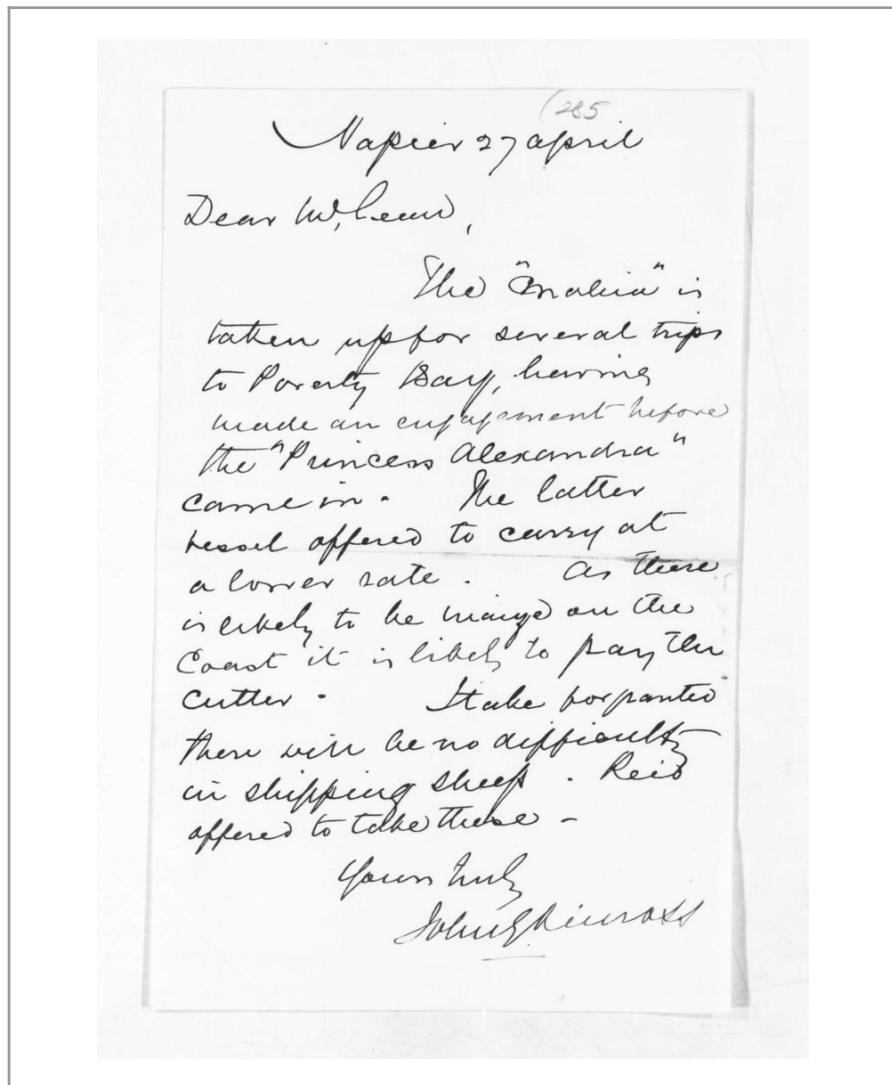 (285
Napier 27 april
Dear McLean,
The "" is
taken up for several trips
to Poverty Bay, having
made an engagement before
the "Princess Alexandra"
came in. The latter
vessel offered to carry at
a lower rate. As there
is likely to be on the
Coast it is likely to pay the
cutter. I take for granted
there will be no difficulty
in shipping sheep. Reid
offered to take these -
Yours truly
John G Kinross